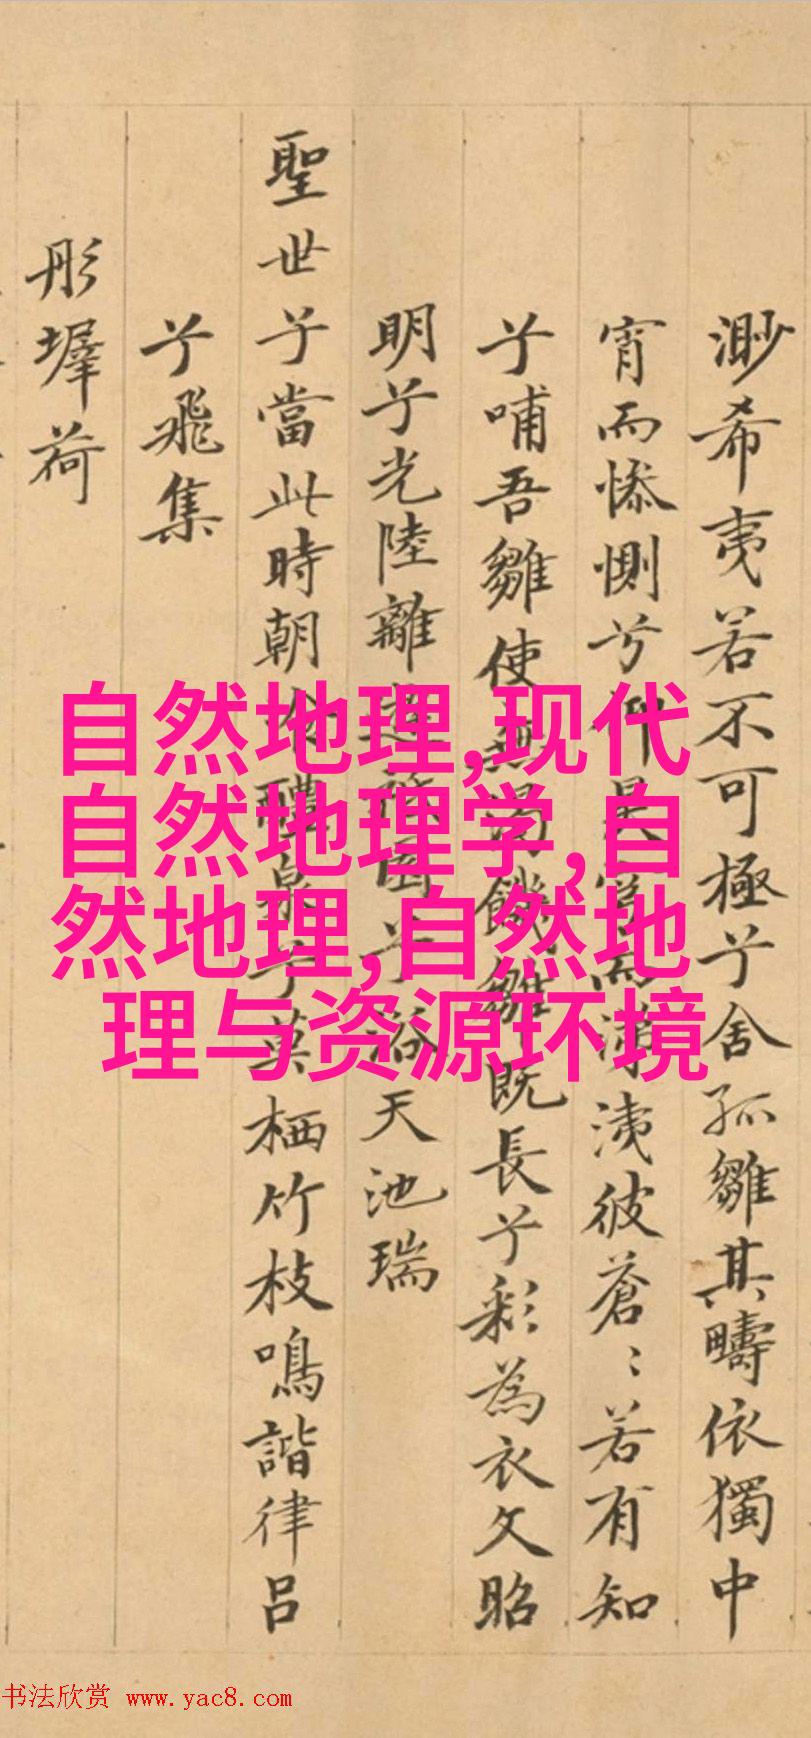 渺希夷若不可極兮舍孤雛其疇依獨中
宵而惨惻兮仰昊穹而涕洟彼蒼〻若有知
兮哺吾雛使無渴饑雛既長兮彩為衣文昭
明兮光陸離遊於園兮浴天池瑞
聖世兮當此時朝飲醴泉兮莫栖竹枝鳴諧律呂
兮飛集
彤墀荷
自然地理,现代
自然地理学,自
然地理,自然地
理与资源环境
书法欣赏 www.yac8.com